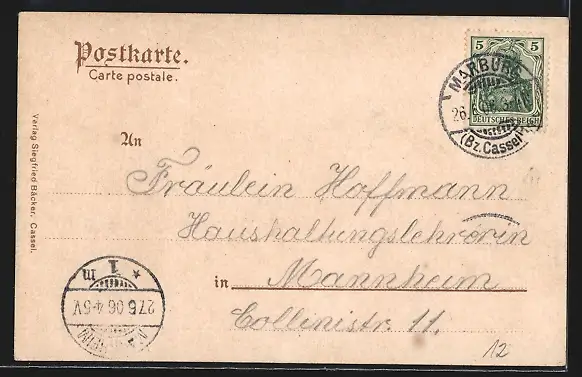 Postkarte.
Carte postale.
5 5
DEUTSCHES REICH
MARBURG
26.
(Bz. Cassel)
Verlag Siegfried Bäcker, Cassel.
An
Fräulein Hoffmann
Haushaltungslehrerin
in Mannheim
Collinistr. 11.
1 m
27.6 06.4-5V
12